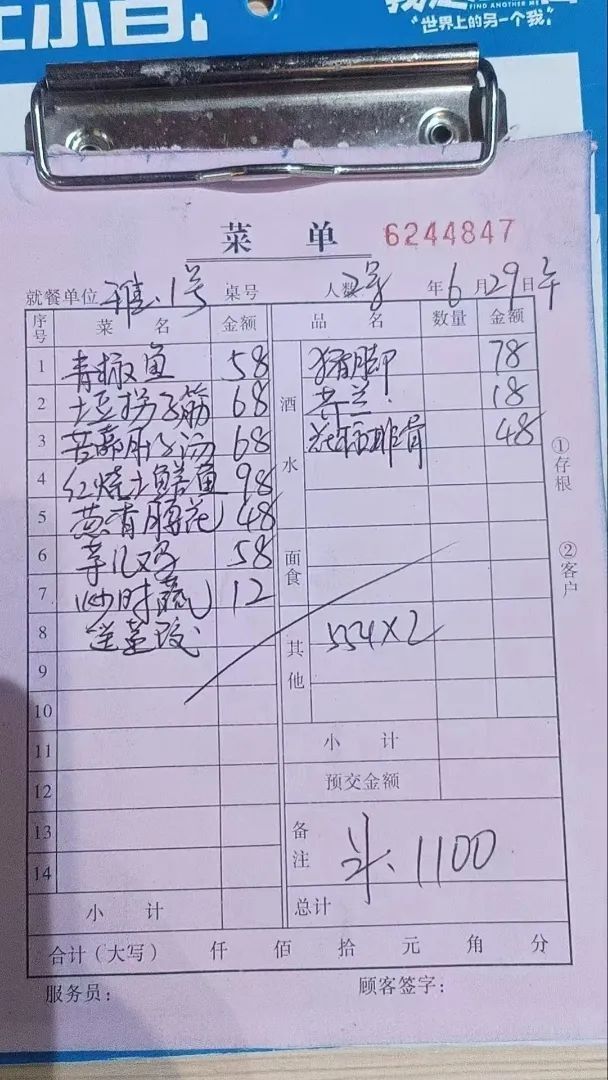 FIND ANOTHER ME
世界上的另一个我
菜 单 6244847
就餐单位 雅.1号 桌号 人数2号 年6月29日午
序号 菜 名 金额 品 名 数量 金额
1 青椒鱼 58 猪脚 78
2 土豆拐子筋 68 酒水 18
3 68 排骨 48
4 红烧土鳝鱼 98
5 葱青腰花 48
6 芋儿鸡 58 面食
7 炒时蔬 12
8 送 其他 554×2
9
10
11 小 计
12 预交金额
13 备注 1100
14
小 计 总计
合计(大写) 仟 佰 拾 元 角 分
服务员: 顾客签字:
①存根
②客户